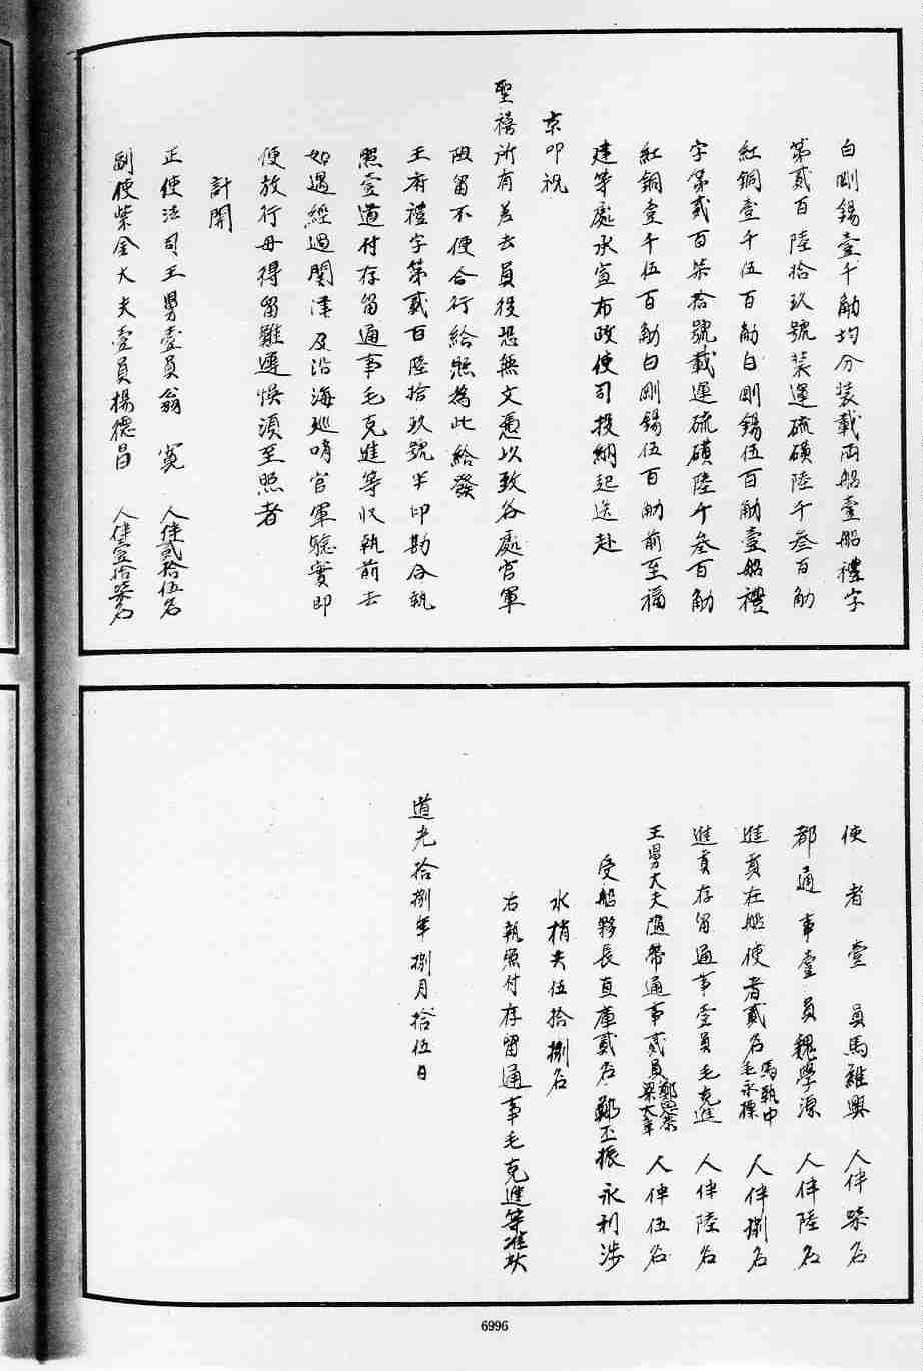 白剛錫壹千觔均分裝載兩船壹船禮字
第貳百陸拾玖號裝運硫磺陸千叁百觔
紅銅壹千伍百觔白剛錫伍百觔壹船禮
字第貳百柒拾號載運硫磺陸千叁百觔
紅銅壹千伍百觔白剛錫伍百觔前至福
建等處承宣布政使司投納起送赴
京叩祝
聖禧所有差去員役恐無文憑以致各處官軍
阻留不便合行給照為此給發
王府禮字第貳百陸拾玖號半印勘合執
照壹道付存留通事毛克進等收執前去
如遇經過關津及沿海巡哨官軍驗實即
便放行毋得留難遲悞須至照者
計開
正使法司王舅壹員翁寬 人伴貳拾伍名
副使紫金大夫壹員楊德昌 人伴壹拾柒名
使者壹員馬維興 人伴柒名
都通事壹員魏學源 人伴陸名
進貢在船使者貳名馬執中毛永標 人伴捌名
進貢存留通事壹員毛克進 人伴陸名
王舅大夫隨帶通事貳員鄭思恭梁大章 人伴伍名
受船夥長直庫貳名鄭丕振 永利涉
水梢共伍拾捌名
右執照付存留通事毛克進等准此
道光拾捌年捌月拾伍日
6996